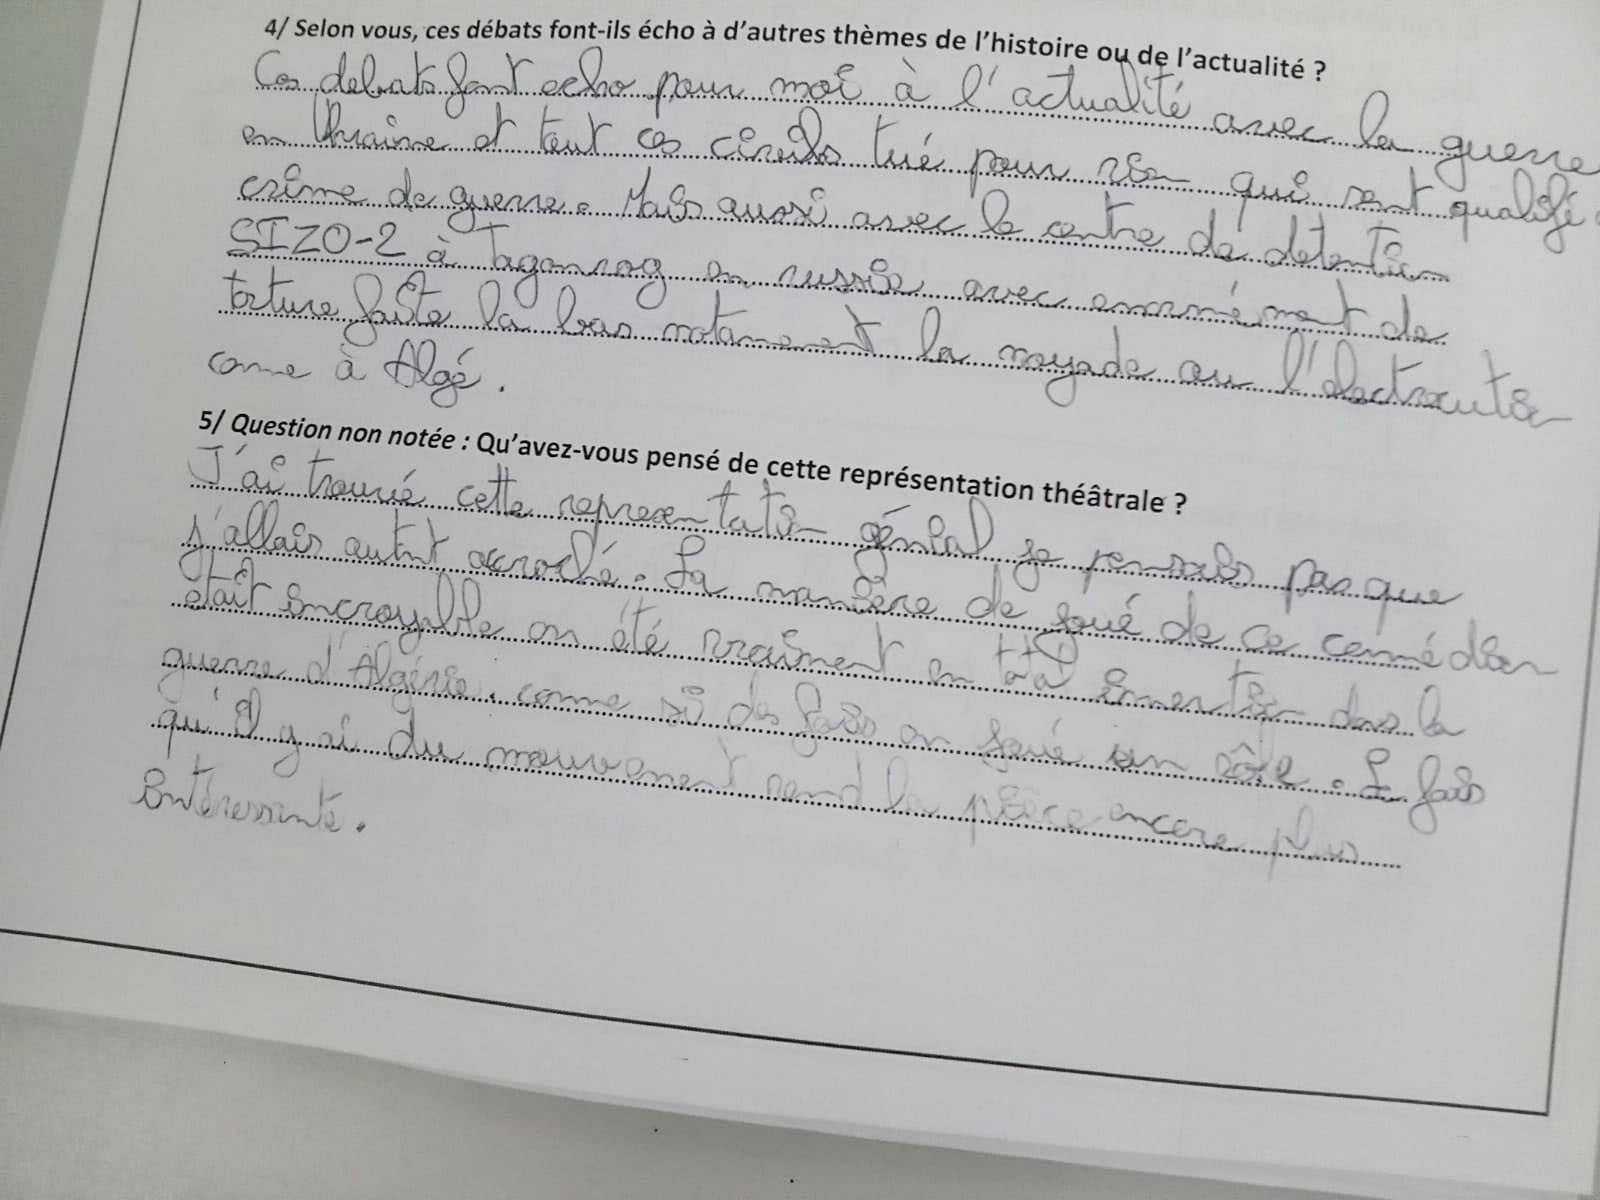 4/ Selon vous, ces débats font-ils écho à d'autres thèmes de l'histoire ou de l'actualité ?
Ces debats font echo pour moi à l'actualité avec la guerre
en Ukraine et tout ces civils tué pour rien qui sont qualifié
crime de guerre. Mais aussi avec le centre de detention
SIZO-2 à Taganrog en russie avec enormément de
torture faite la bas notament la noyade ou l'électrocution
come à Algé.
5/ Question non notée : Qu'avez-vous pensé de cette représentation théâtrale ?
J'ai trouvé cette representation génial je pensais pas que
j'allais autant accroché. La manière de joué de ce comédien
était incroyable on été vraiment en total immertion dans la
guerre d'Algérie. comme si des fois on joué un rôle. Le fais
qu'il y ai du mouvement rend la pièce encore plus
intéressante.